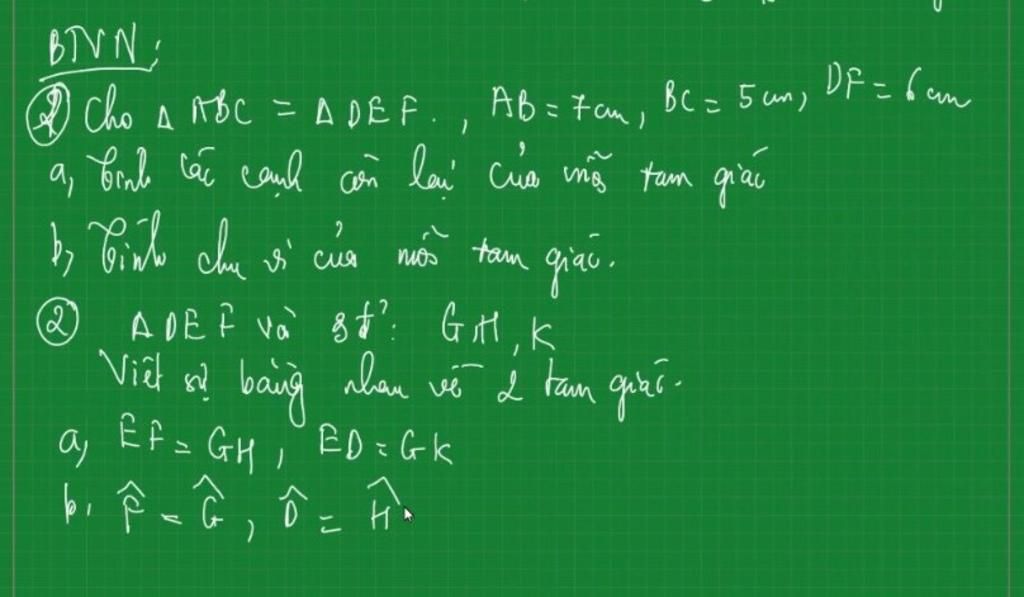 BTVN:
① Cho Δ ABC = Δ DEF., AB = 7cm, BC = 5cm, DF = 6cm
a, Tính các cạnh còn lại của mỗi tam giác
b, Tính chu vi của mỗi tam giác.
② Δ DEF và 3 đ²: G, H, K
Viết sự bằng nhau về 2 tam giác.
a, EF = GH, ED = GK
b. F̂ = Ĝ, D̂ = Ĥ